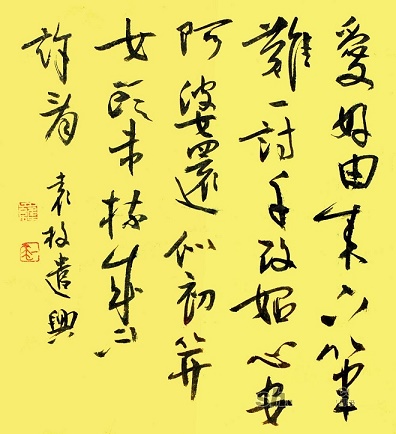 愛好由來下筆
難一詩千改始心安
阿婆還似初笄
女頭未梳成不
許看 袁枚遣興